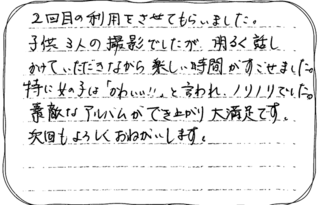 2回目の利用をさせてもらいました。
子供3人の撮影でしたが、明るく話し
かけていただきながら楽しい時間がすごせました。
特に女の子は「かわいい!!」と言われ、ノリノリでした。
素敵なアルバムができ上がり大満足です。
次回もよろしくおねがいします。